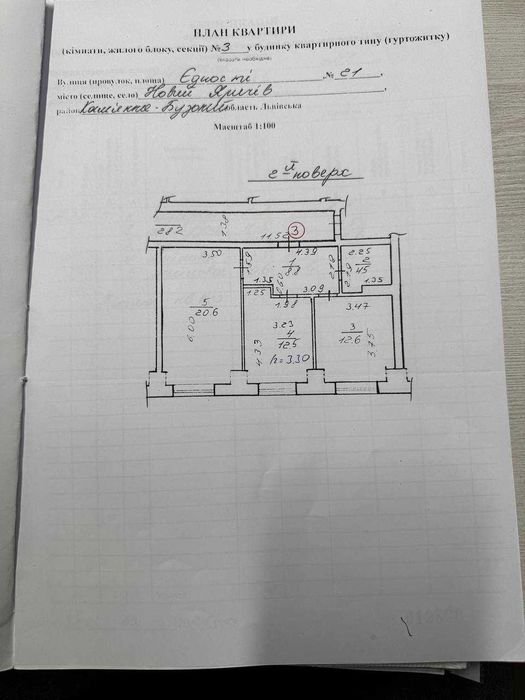 ПЛАН КВАРТИРИ
(кімнати, жилого блоку, секції) № 3 у будинку квартирного типу (гуртожитку)
(вказати необхідне)
Вулиця (провулок, площа) Єдності № 21,
місто (селище, село) Новий Яричів,
район Кам'янка-Бузький область Львівська
Масштаб 1:100
2й поверх
282 1.38 11.50 3
3.50 1.59 4.39 1 8.8 2.18 2.25 2 4.5
1.35 1.60 3.09 2.18 1.35
1.25 1.98 3.47
5 20.6 6.00
3.23 4 12.5 4.33 h=3,30
3 12.6 3.75